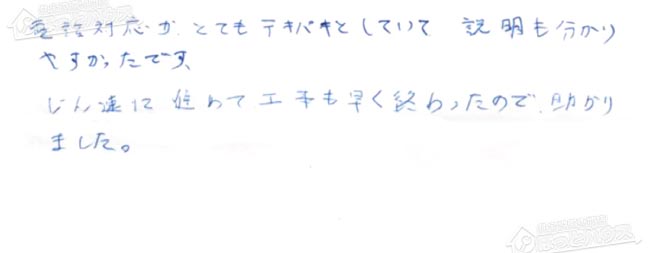 電話対応が、とてもテキパキとしていて 説明も分かり
やすかったです。
じん速に 進めて工事も早く終わったので、助かり
ました。